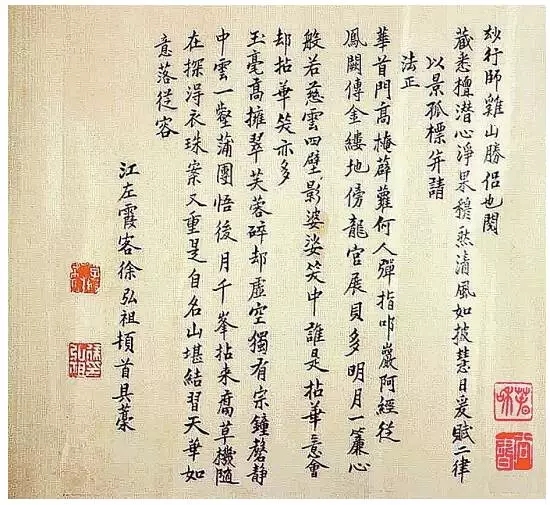 玅行師雞山勝侶也閱
藏悉檀潛心淨果穆然清風如披慧日爰賦二律
以景孤標并請
法正
華首門高掩薜蘿何人彈指叩巖阿經從
鳳闕傳金縷地傍龍宮展貝多明月一簾心
般若慈雲四壁影婆娑笑中誰是拈華意會
却拈華笑亦多
玉毫高擁翠芙蓉碎却虛空獨有宗鐘磬靜
中雲一壑蒲團悟後月千峯拈來腐草機隨
在探得衣珠案又重是自名山堪結習天華如
意落從容
江左霞客徐弘祖頓首具藁